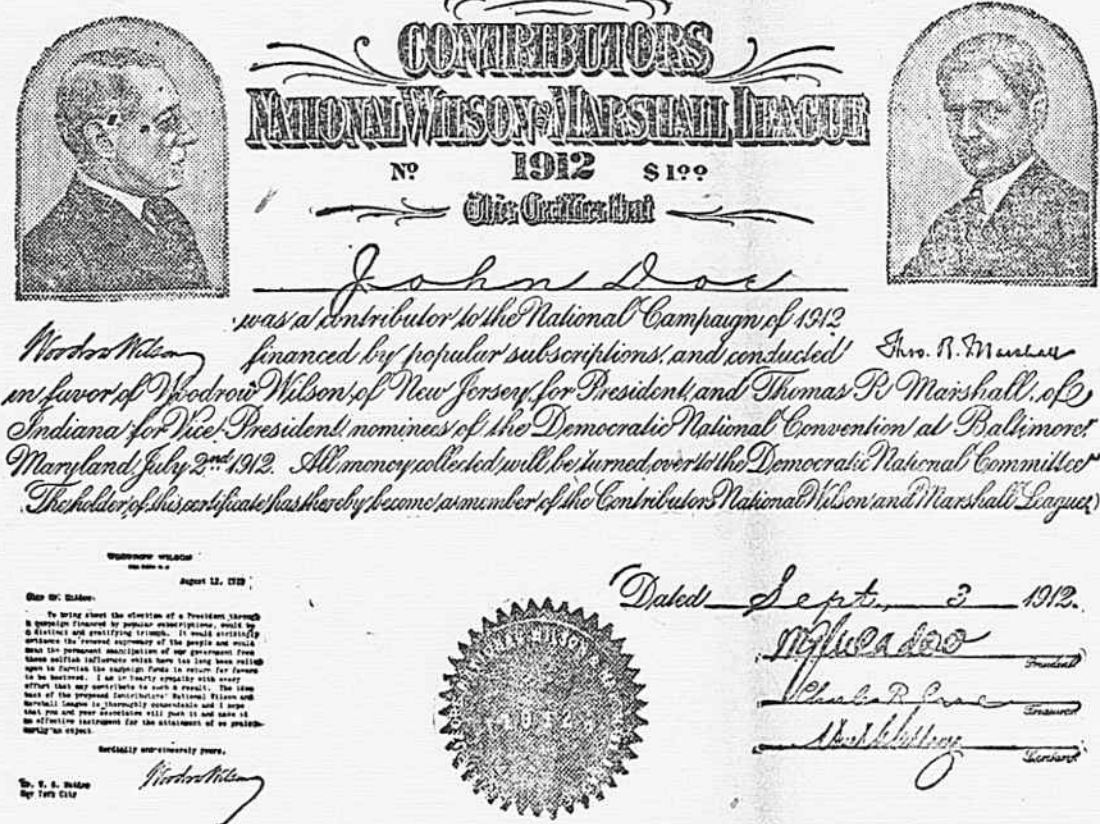 CONTRIBUTORS
NATIONAL WILSON & MARSHALL LEAGUE
No 1912 $1.00
This Certifies that
John Doe
was a contributor to the National Campaign of 1912
Woodrow Wilson
financed by popular subscriptions, and conducted
Thos. R. Marshall
in favor of Woodrow Wilson, of New Jersey, for President, and Thomas R. Marshall, of
Indiana for Vice-President, nominees of the Democratic National Convention at Baltimore,
Maryland, July 2nd 1912. All money collected, will be turned over to the Democratic National Committee
The holder of this certificate has thereby become a member of the Contributors National Wilson and Marshall League.
WOODROW WILSON
August 12, 1912
To bring about the election of a President through
a campaign financed by popular subscriptions, would be
a distinct and gratifying triumph. It would strikingly
evidence the renewed supremacy of the people and would
mean the permanent emancipation of our government from
those selfish influences which have too long been relied
upon to furnish the campaign funds in return for favors
to be bestowed. I am in hearty sympathy with every
effort that may contribute to such a result. The idea
back of the proposed Contributors' National Wilson and
Marshall League is thoroughly commendable and I hope
that you and your associates will push it and make it
an effective instrument for the attainment of so
an object.
Cordially and sincerely yours,
Woodrow Wilson
New York City
NATIONAL WILSON
1912
Dated Sept. 3 1912.
President
Charles R.
Treasurer
Secretary